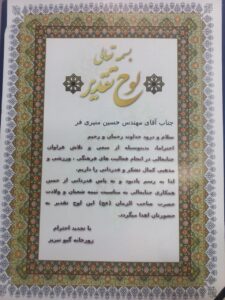 بسمه تعالی
لوح تقدیر
جناب آقای مهندس حسین منیری فر
سلام و درود خداوند رحمان و رحیم
احتراما، بدینوسیله از سعی و تلاش فراوان
جنابعالی در انجام فعالیت های فرهنگی ، ورزشی و
مذهبی کمال تشکر و قدردانی را داریم.
لذا به رسم یادبود و به پاس قدردانی از حسن
همکاری جنابعالی به مناسبت نیمه شعبان و ولادت
حضرت صاحب الزمان (عج) این لوح تقدیر به
حضورتان اهدا میگردد.
با تجدید احترام